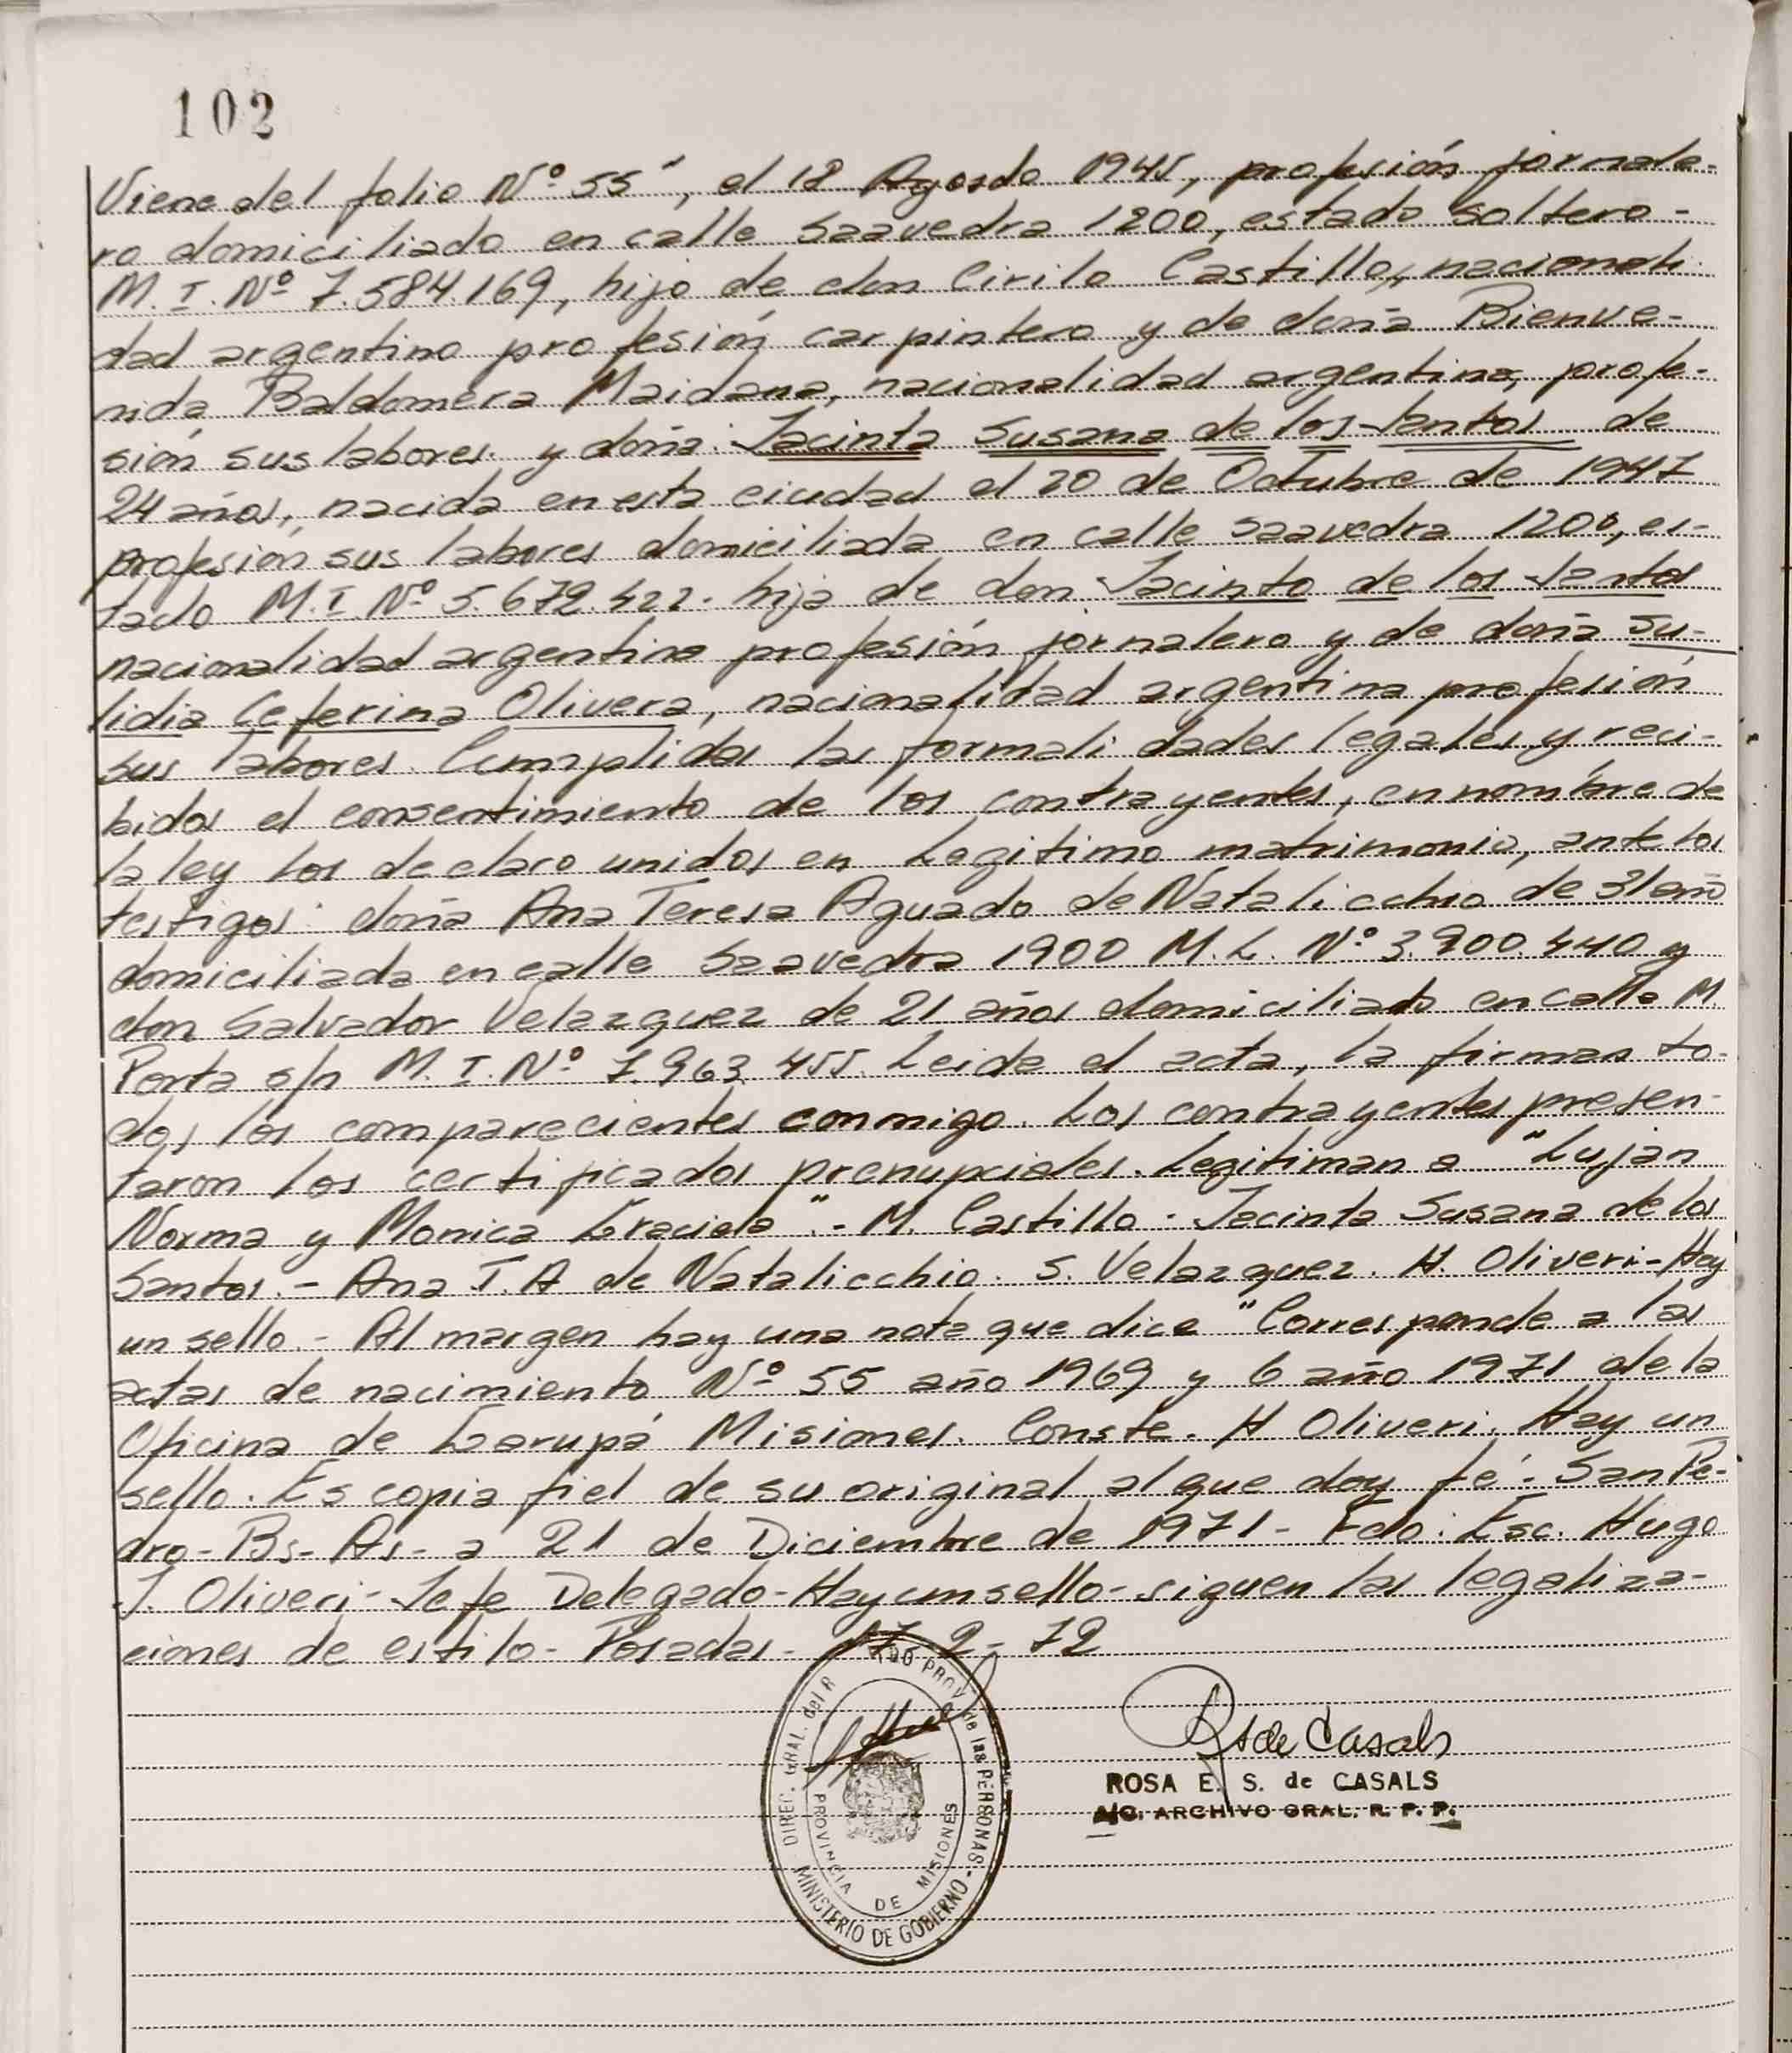 102
Viene del folio Nº 55", el 18 Agosto 1945, profesión jornale-
ro domiciliado en calle Saavedra 1200, estado soltero -
M. I. Nº 7.584.169, hijo de don Cirilo Castillo, nacionali-
dad argentino profesión carpintero y de doña Bienve-
nida Baldomera Maidana, nacionalidad argentina, profe-
sión sus labores. y doña: Jacinta Susana de los Santos de
24 años, nacida en esta ciudad el 20 de Octubre de 1947
profesión sus labores domiciliada en calle Saavedra 1200, es-
tado M. I. Nº 5.672.422. hija de don Jacinto de los Santos
nacionalidad argentino profesión jornalero y de doña Su-
lidia Ceferina Olivera, nacionalidad argentina profesión
sus labores. Cumplidas las formalidades legales y reci-
bidos el consentimiento de los contrayentes, en nombre de
la ley los declaro unidos en Legitimo matrimonio, ante los
testigos: doña Ana Teresa Aguado de Natalicchio de 31 año
domiciliada en calle Saavedra 1900 M. L. Nº 3.900.440 y
don Salvador Velazquez de 21 años domiciliado en calle M.
Porta s/n M. I. Nº 7.963.455. Leida el acta, la firman to-
dos los comparecientes conmigo. Los contrayentes presen-
taron los certificados prenupciales. Legitiman a "Luján
Norma y Monica Graciela". - M. Castillo - Jacinta Susana de los
Santos. - Ana T. A de Natalicchio. S. Velazquez. H. Oliveri - Hay
un sello. - Al margen hay una nota que dice "Corresponde a las
actas de nacimiento Nº 55 año 1969 y 6 año 1971 de la
Oficina de Garupá Misiones. Conste. H Oliveri. Hay un
sello. Es copia fiel de su original al que doy fé - San Pe-
dro - Bs - As - a 21 de Diciembre de 1971 - Fdo: Esc. Hugo
J. Oliveri - Jefe Delegado - Hay un sello - siguen las legaliza-
ciones de estilo - Posadas - 17 - 2 - 72
DIREC. GRAL. del R PROV. de las PERSONAS
MINISTERIO DE GOBIERNO
PROVINCIA DE MISIONES
RS de Casals
ROSA E. S. de CASALS
A/C. ARCHIVO GRAL. R. P. P.